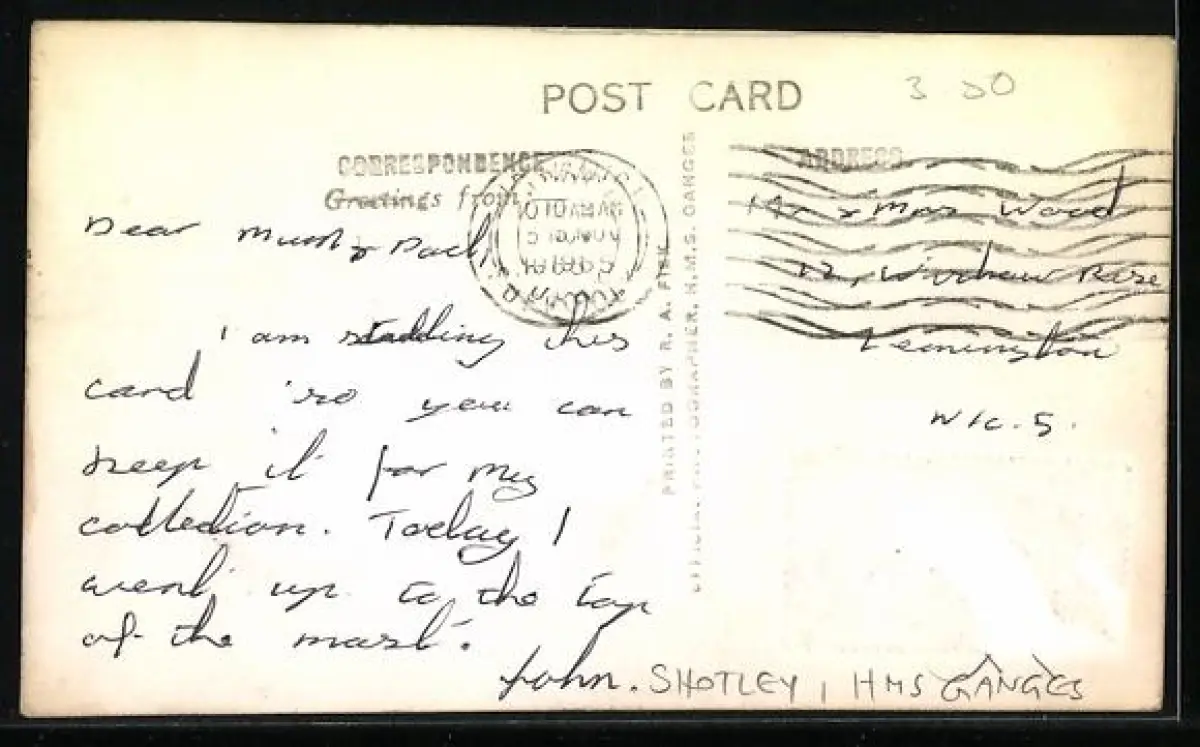 POST CARD
3 50
CORRESPONDENCE
Greetings from
ADDRESS
Dear Mum & Dad,
I am this
card so you can
keep it for my
collection. Today I
went up to the top
of the mast.
John.
Mr & Mrs Wood
12, Rise
Lemington
N/C. 5.
PRINTED BY R. A. FISK
OFFICIAL PHOTOGRAPHER, H.M.S. GANGES
SHOTLEY, HMS GANGES